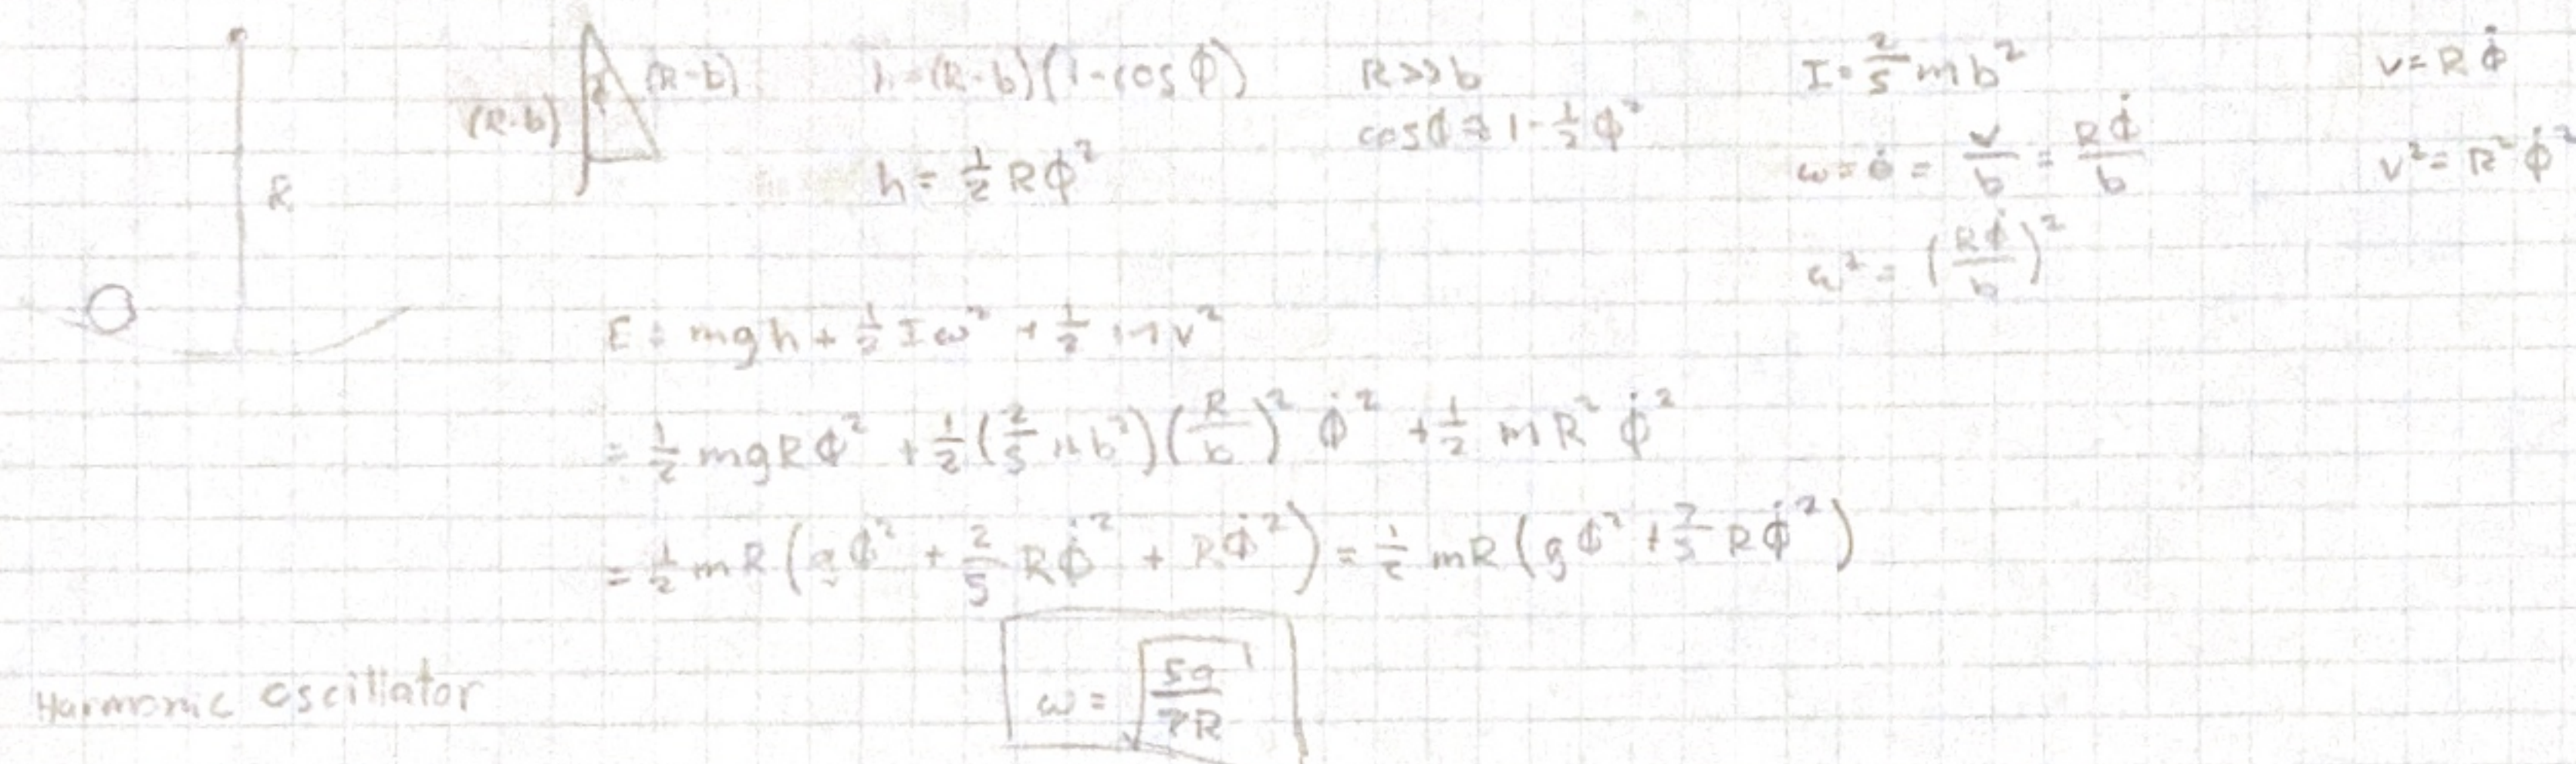 (R-b) (R-b) h=(R-b)(1-cos ϕ) R>>b I=2/5 mb² v=Rϕ̇
cosϕ≈1-½ϕ²
R h=½Rϕ² ω=θ̇=v/b=Rϕ̇/b v²=R²ϕ̇²
ω²=(Rϕ̇/b)²
E=mgh+½Iω²+½mv²
=½mgRϕ²+½(2/5 mb²)(R/b)²ϕ̇²+½mR²ϕ̇²
=½mR(gϕ²+2/5 Rϕ̇²+Rϕ̇²)=½mR(gϕ²+7/5 Rϕ̇²)
Harmonic oscillator ω=√(5g/7R)